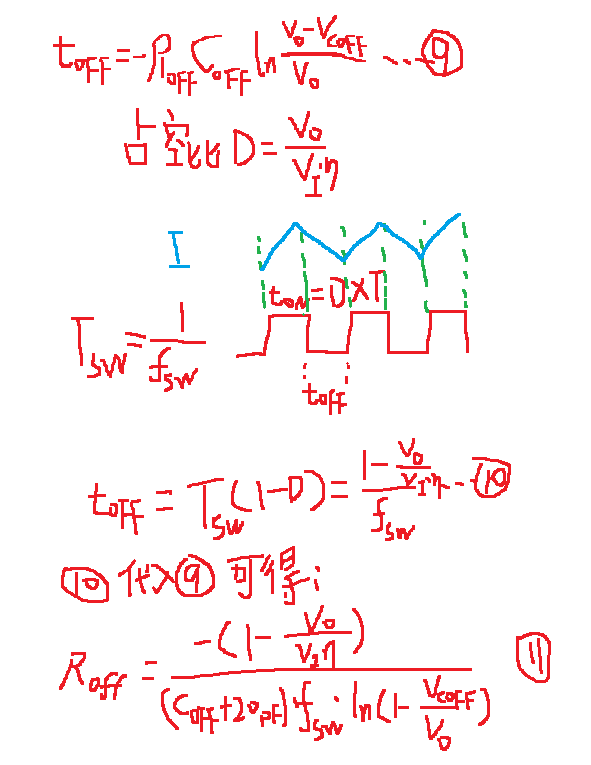 t_OFF = -R_OFF C_OFF ln (V_O - V_COFF)/V_O ... ⑨
占空比 D = V_O/(V_I η)
I
t_ON = D×T
T_SW = 1/f_SW
t_OFF
t_OFF = T_SW (1-D) = (1 - V_O/(V_I η))/f_SW ... ⑩
⑩代入⑨可得:
R_OFF = -(1 - V_O/(V_I η))/((C_OFF+20PF) f_SW · ln(1 - V_COFF/V_O)) ⑪